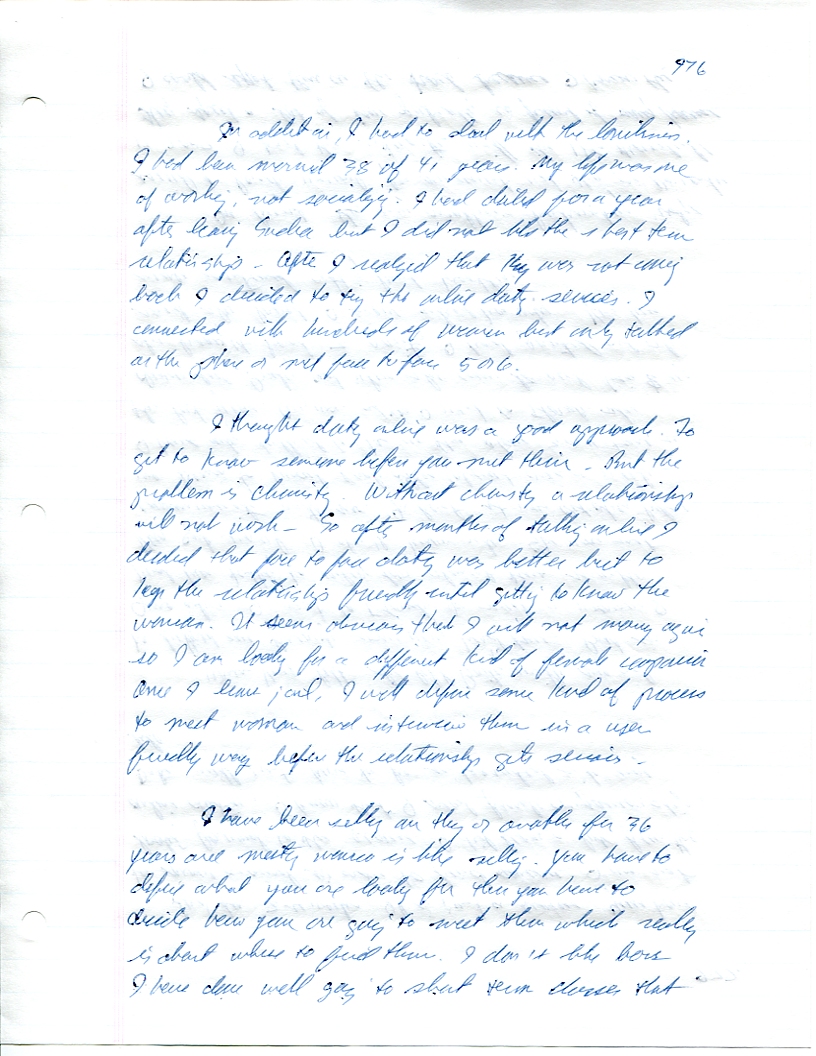 976
In addition, I had to deal with the loneliness.
I had been married 38 of 41 years. My life was one
of working, not socializing. I had dated for a year
after leaving but I did not like the short term
relationships - After I realized that was not coming
back I decided to try the online dating services. I
connected with hundreds of women but only talked
on the phone or met face to face 5 or 6.
I thought dating online was a good approach. To
get to know someone before you met them - But the
problem is chemistry. Without chemistry a relationship
will not work - So after months of talking online I
decided that face to face dating was better but to
keep the relationship friendly until getting to know the
woman. It seems obvious that I will not marry again
so I am looking for a different kind of female companion
Once I leave jail, I will define some kind of process
to meet woman and interview them in a user
friendly way before the relationship gets serious -
I have been selling one thing or another for 36
years and meeting women is like selling. You have to
define what you are looking for then you have to
decide how you are going to meet them which really
is about where to find them. I don't like bars
I have done well going to short term classes that